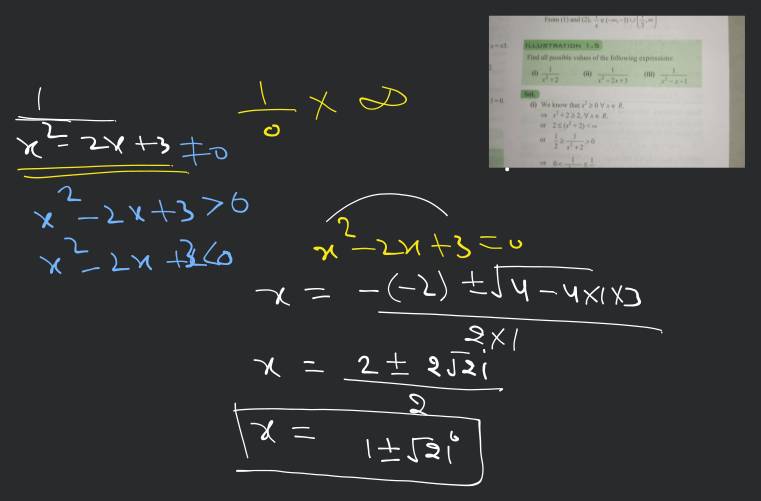 From (1) and (2), 1/x ∈ (-∞, -1) ∪ [1/2, ∞)
ILLUSTRATION 1.5
Find all possible values of the following expressions:
(i) 1/(x²+2) (ii) 1/(x²-2x+3) (iii) 1/(x²-x-1)
Sol.
(i) We know that x² ≥ 0 ∀ x ∈ R.
⇒ x² + 2 ≥ 2, ∀ x ∈ R.
or 2 ≤ (x² + 2) < ∞
or 1/2 ≥ 1/(x²+2) > 0
1/(x² - 2x + 3) ≠ 0
1/0 × ∞
x² - 2x + 3 > 0
x² - 2x + 3 < 0
x² - 2x + 3 = 0
x = (-(-2) ± √4 - 4×1×3)/(2×1)
x = (2 ± 2√2i)/2
x = 1 ± √2i